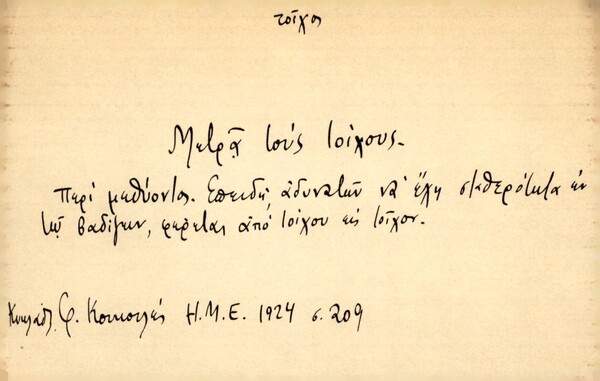 τοῖχος
Μετρᾷ τοὺς τοίχους.
Περὶ μεθύοντος. Ἐπειδὴ, ἀδυνατῶν νὰ ἔχῃ σταθερότητα ἐν
τῷ βαδίζειν, φέρεται ἀπὸ τοίχου εἰς τοῖχον.
Φ. Κουκουλές Η.Μ.Ε. 1924 σ. 209